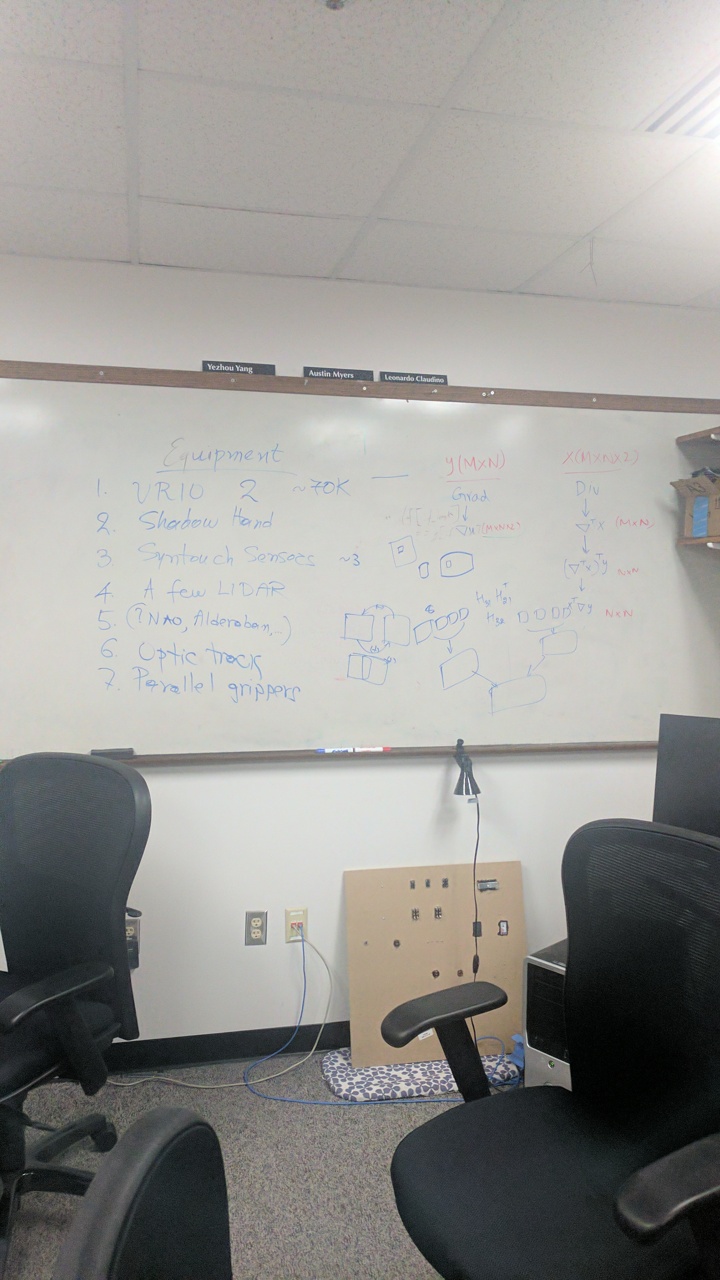 Yezhou Yang
Austin Myers
Leonardo Claudino
Equipment
1. VR10 2 ~70K
2. Shadow Hand
3. Syntouch Sensors ~3
4. A few LIDAR
5. (?NAO, Alderoban,..)
6. Optic track
7. Parallel grippers
y(M×N)
Grad
(M×N×2)
X(M×N×2)
Div
∇ᵀx (M×N)
N×N